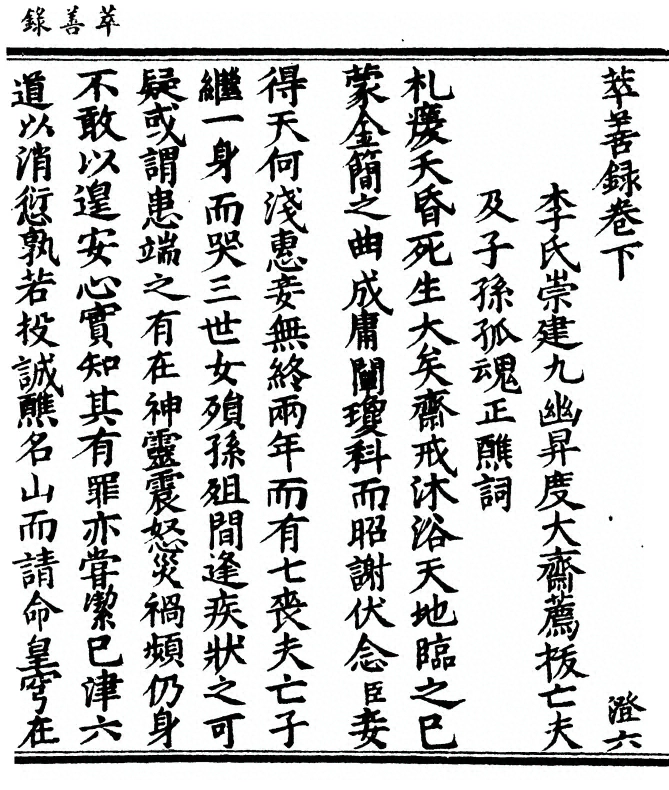 萃善錄
萃善錄卷下
澄六
李氏崇建九幽昇度大齋薦拔亡夫
及子孫孤魂正醮詞
札瘥夭昏死生大矣齋戒沐浴天地臨之已
蒙金簡之曲成庸闡瓊科而昭謝伏念臣妾
得天何淺惠妾無終兩年而有七喪夫亡子
繼一身而哭三世女殞孫殂間逢疾狀之可
疑或謂患端之有在神靈震怒災禍頻仍身
不敢以遑安心實知其有罪亦嘗潔已津六
道以消愆孰若投誠醮名山而請命皇穹在